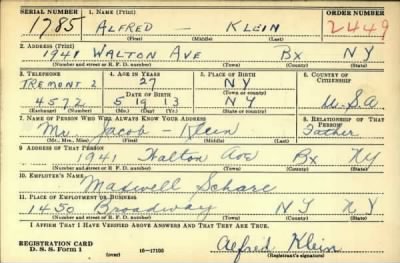 SERIAL NUMBER 1. NAME (Print) ORDER NUMBER
1785 ALFRED — KLEIN 2449
(First) (Middle) (Last)
2. ADDRESS (Print)
1941 WALTON AVE BX NY
(Number and street or R. F. D. number) (Town) (County) (State)
3. TELEPHONE 4. AGE IN YEARS 5. PLACE OF BIRTH 6. COUNTRY OF CITIZENSHIP
TREMONT 2 27 NY
DATE OF BIRTH (Town or county)
4572 5 19 13 NY U.S.A
(Exchange) (Number) (Mo.) (Day) (Yr.) (State or country)
7. NAME OF PERSON WHO WILL ALWAYS KNOW YOUR ADDRESS 8. RELATIONSHIP OF THAT PERSON
Mr. Jacob — Klein Father
(Mr., Mrs., Miss) (First) (Middle) (Last)
9. ADDRESS OF THAT PERSON
1941 Walton Ave Bx NY
(Number and street or R. F. D. number) (Town) (County) (State)
10. EMPLOYER'S NAME
Maxwell
11. PLACE OF EMPLOYMENT OR BUSINESS
1450 Broadway NY NY
(Number and street or R. F. D. number) (Town) (County) (State)
I AFFIRM THAT I HAVE VERIFIED ABOVE ANSWERS AND THAT THEY ARE TRUE.
REGISTRATION CARD
D. S. S. Form 1 16—17105 Alfred Klein
(over) (Registrant's signature)